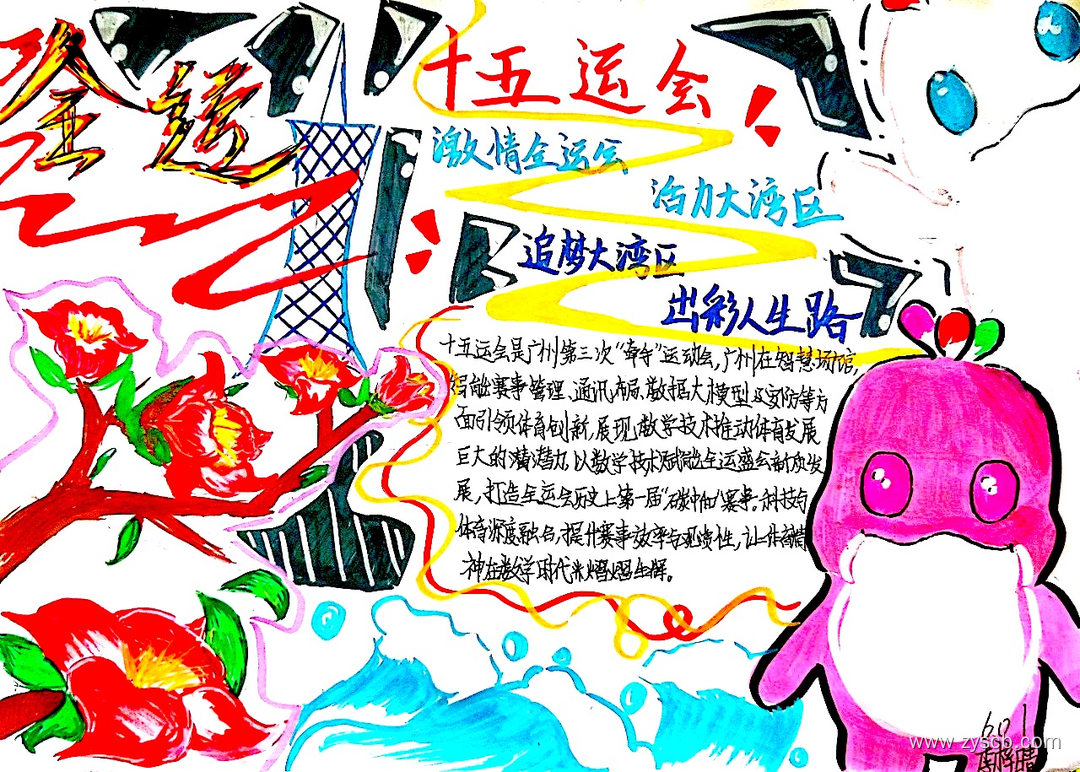 全运
十五运会
激情全运会
活力大湾区
追梦大湾区
出彩人生路
十五运会是广州第三次“牵手”运动会,广州在智慧场馆,
智能赛事管理、通讯布局、数据大模型及安防等方
面引领体育创新,展现数字技术推动体育发展
巨大的潜力,以数字技术赋能全运盛会新质发
展,打造全运会历史上第一届“碳中和”赛事。科技与
体育深度融合,提升赛事效率与观赏性,让体育精
神在数字时代熠熠生辉。
601
www.zyscb.com